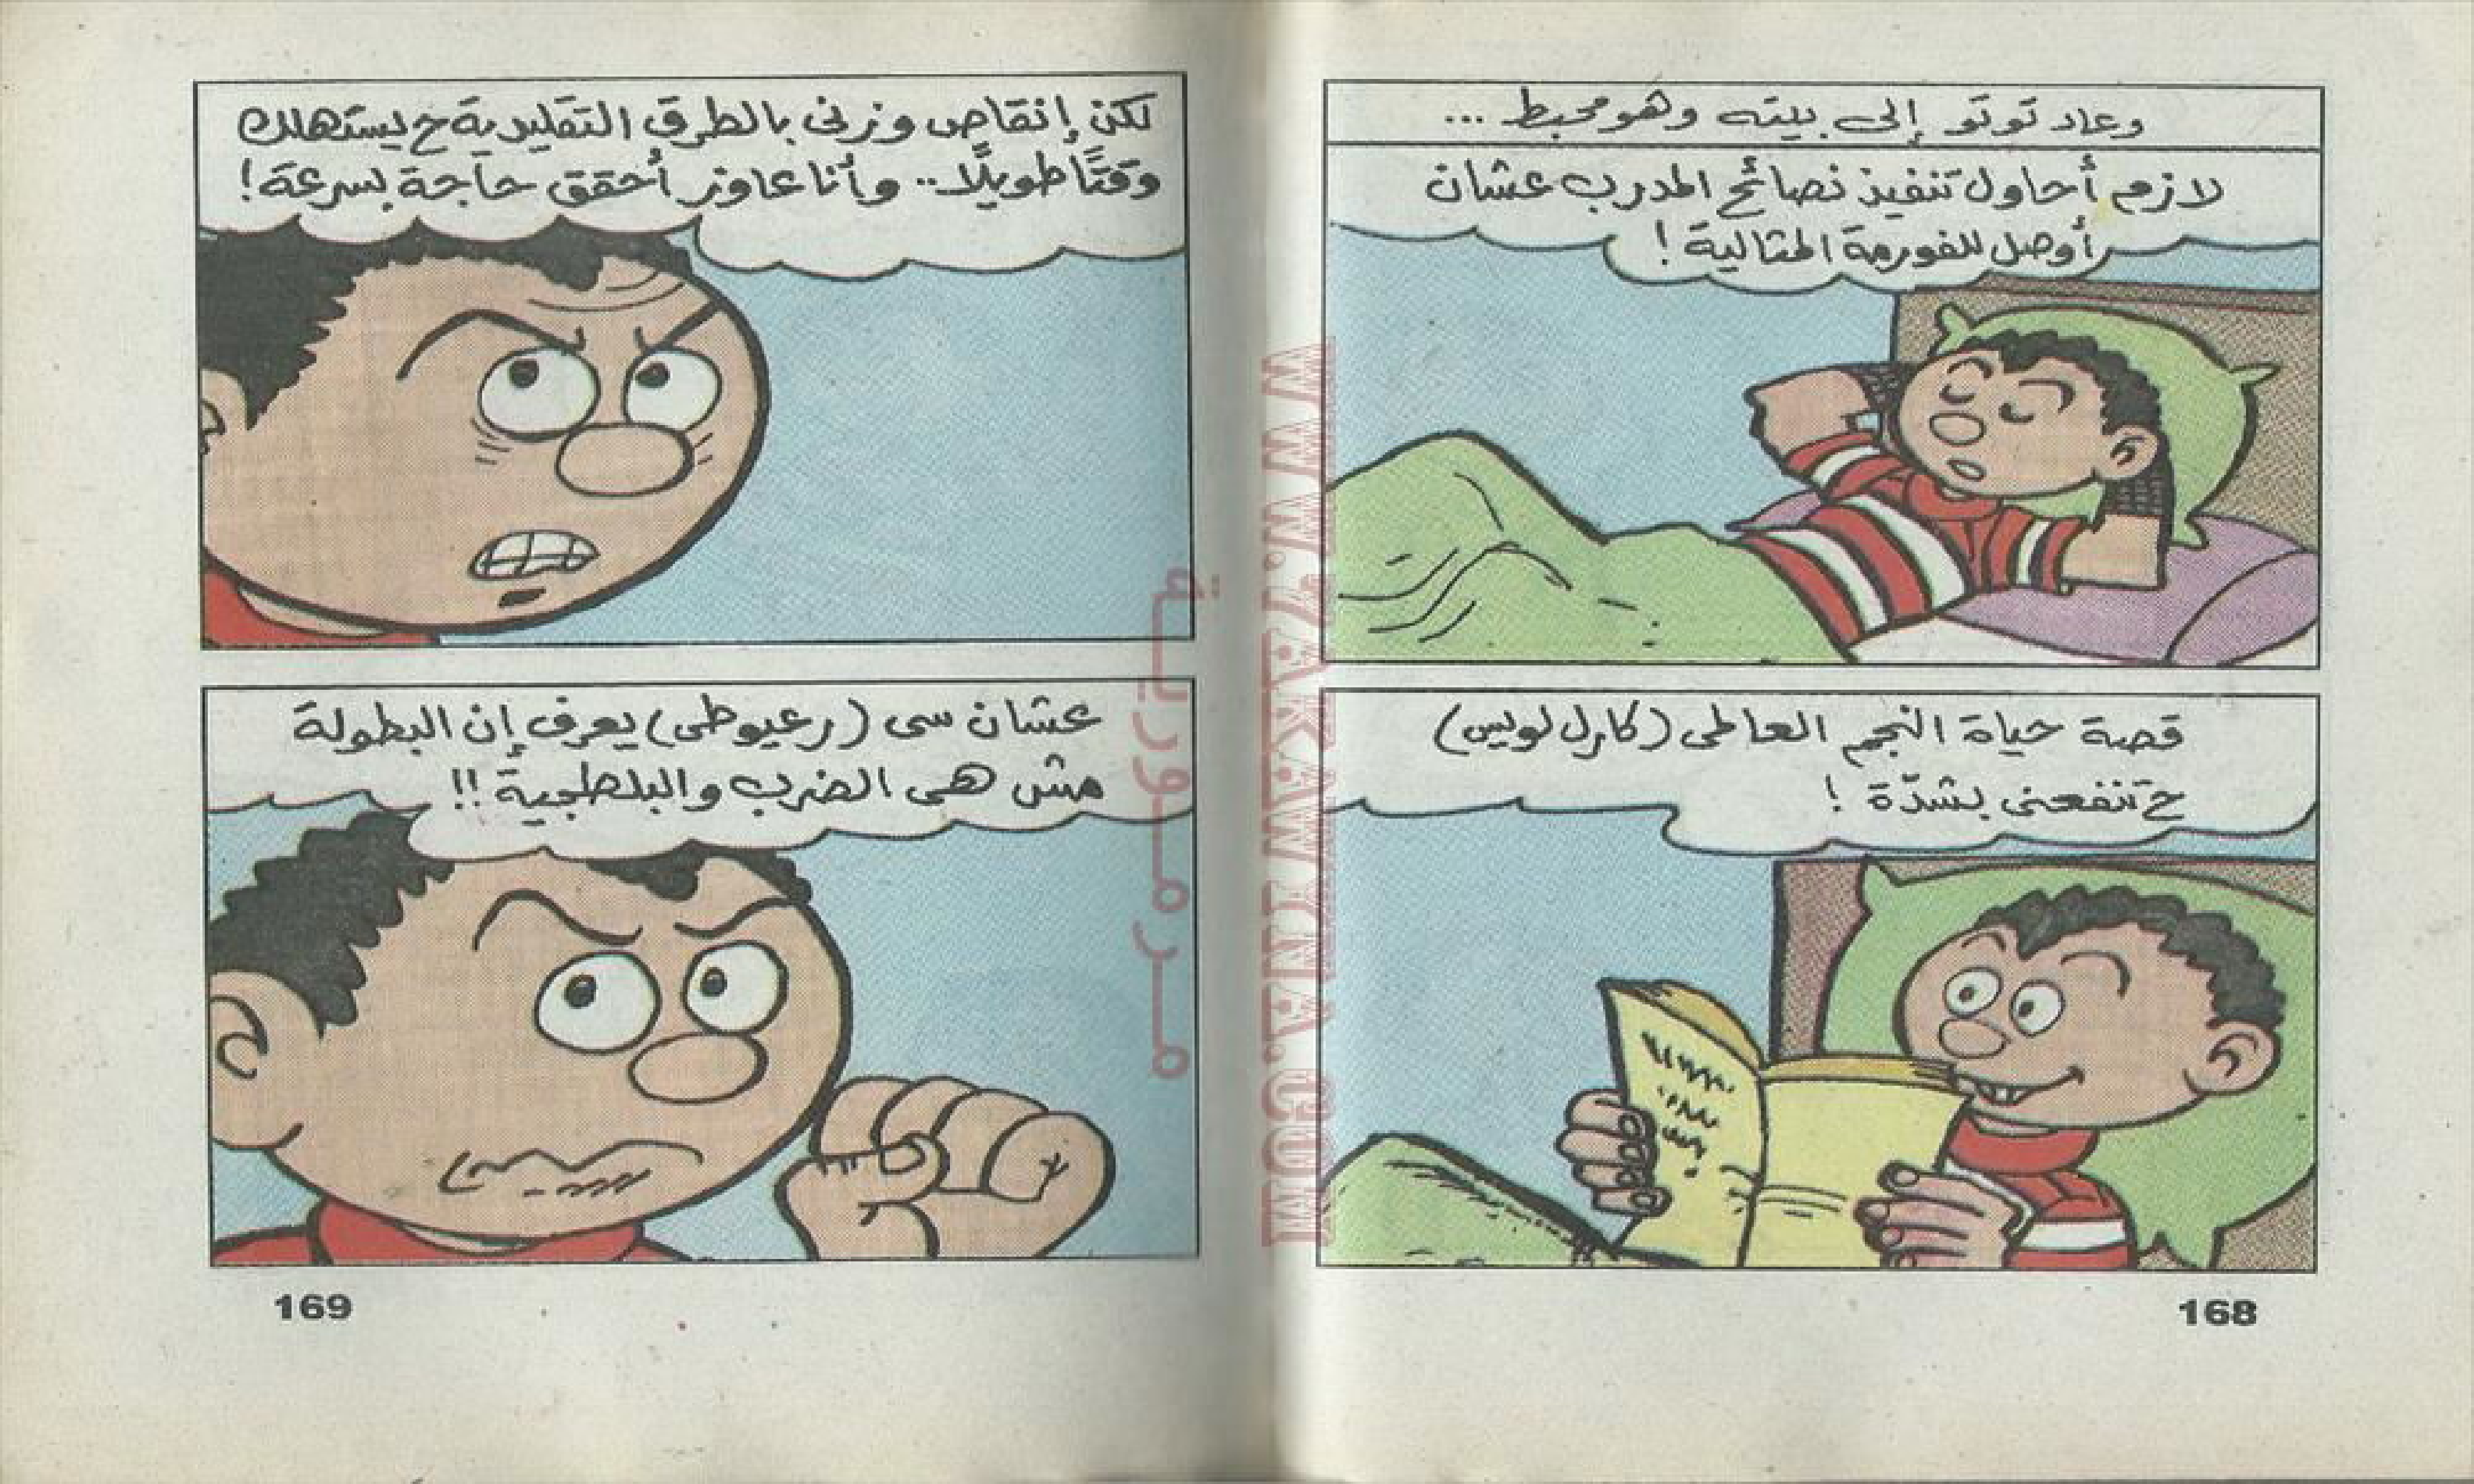 وعاد توتو إلى بيته وهو محبط ...
لازم أحاول تنفيذ نصائح المدرب عشان
أوصل للفورمة المثالية !
قصة حياة النجم العالمى (كارل لويس)
ح تنفعنى بشدّة !
168
لكن إنقاص وزنى بالطرق التقليدية ح يستهلك
وقتًا طويلًا .. وأنا عاوز أُحقق حاجة بسرعة !
عشان سى (رعيوطى) يعرف إن البطولة
مش هى الضرب والبلطجية !!
169
مرمورية
WWW.7AKAWYNA.COM